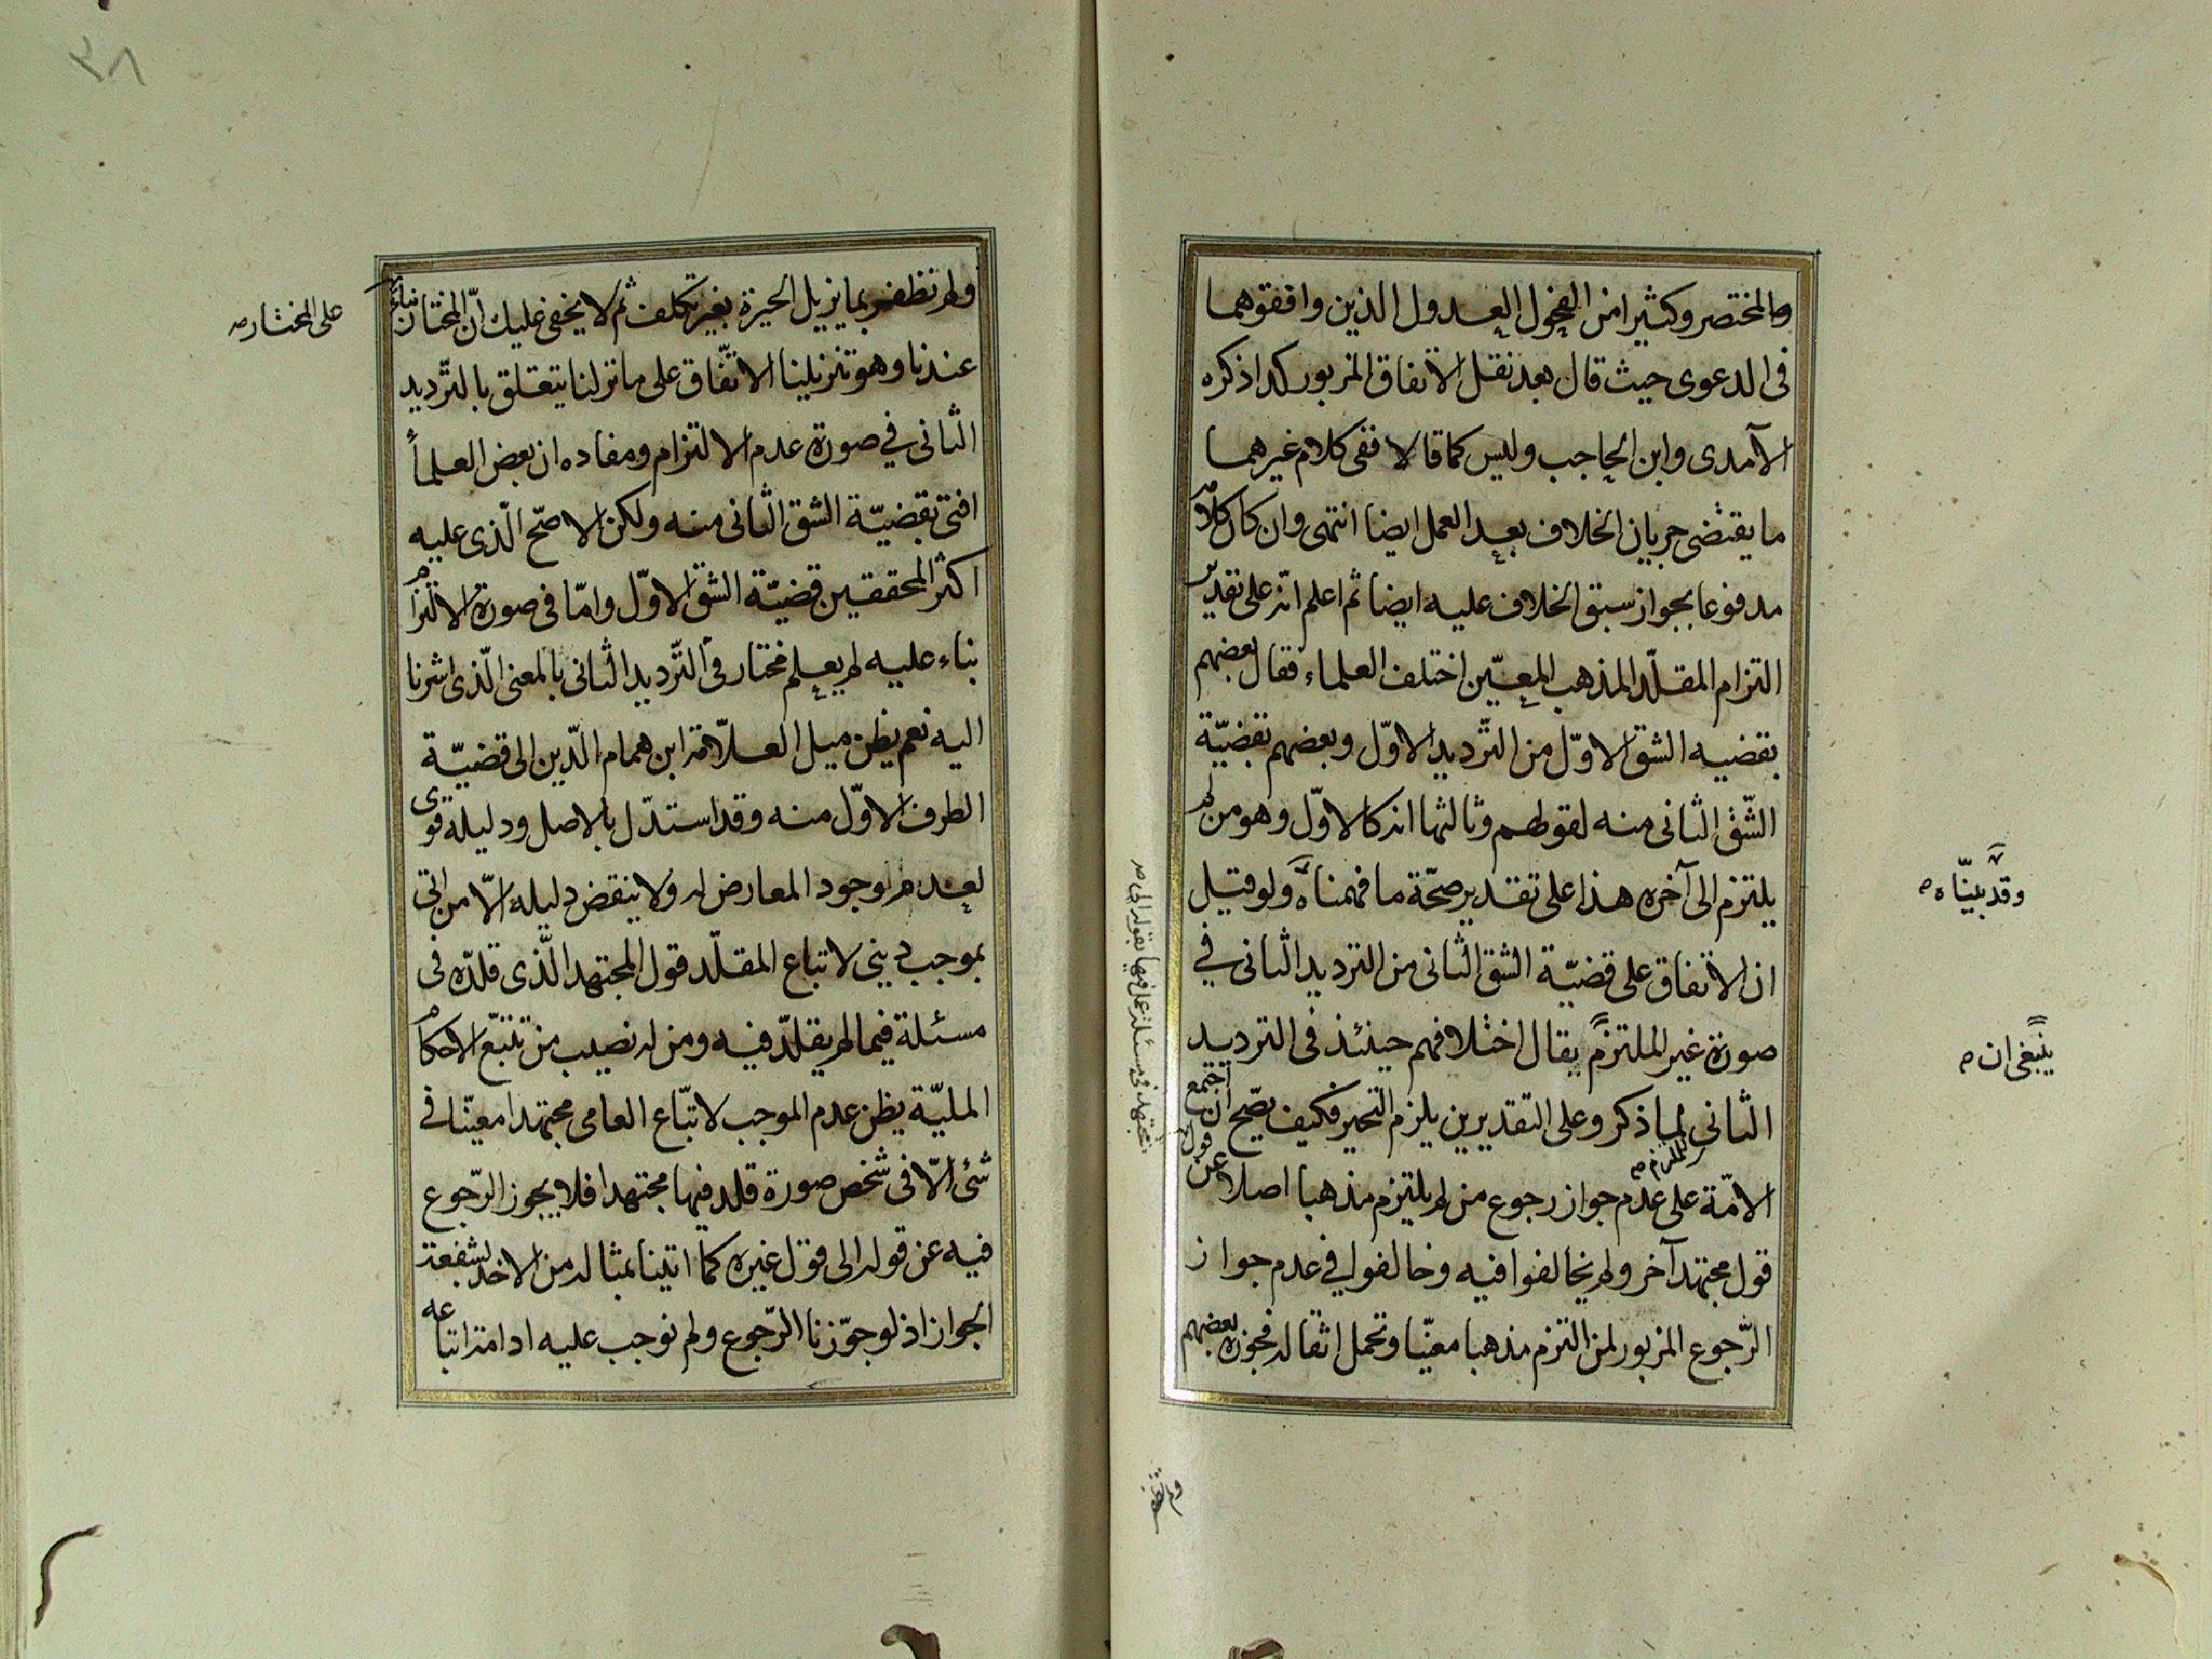 والمختصر وكثيرا من الفحول العدول الذين وافقوهما
فى الدعوى حيث قال بعد نقل الاتفاق المزبور كذا ذكره
الآمدى وابن الحاجب وليس كما قالا ففى كلام غيرهما
ما يقتضى جريان الخلاف بعد العمل ايضا انتهى وان كان كلامه
مدفوعا بجواز سبق الخلاف عليه ايضا ثم اعلم انه على تقدير
التزام المقلّد المذهب المعيّن اختلف العلماء فقال بعضهم
بقضيه الشق الاوّل من التّرديد الاوّل وبعضهم بقضيّة
الشّق الثانى منه لقولهم وثالثها انه كالاوّل وهو من لم
يلتزم الى آخره هذا على تقدير صحّة ما فهمناه ولو قيل
وقد بيّناه صح
ان الاتفاق على قضيّة الشق الثانى من الترديد الثانى في
صورة غير الملتزم يقال اختلافهم حينئذ فى الترديد
ينبغى ان صح
الثانى لما ذكر وعلى التقديرين يلزم التحير فكيف يصّح ان اجتمع
الامّة على عدم جواز رجوع من لم يلتزم مذهبا اصلا عن قول
مجتهد فى مسئلة عمل فيها بقوله الى صح
قول مجتهد آخر ولم يخالفوا فيه وخالفوا في عدم جواز
الرّجوع المزبور لمن التزم مذهبا معيّنا وتحمل اثقاله فجوزه بعضهم
ولم تظفر
٣٨
ولم تظفر بما يزيل الحيرة بغير تكلف ثم لا يخفى عليك انّ المختار بناء
على المختار صح
عندنا وهو تنزيلنا الاتّفاق على ما نزلنا يتعلق بالتّرديد
الثانى في صورة عدم الالتزام ومفاده ان بعض العلمأ
افتى بقضيّة الشق الثانى منه ولكن الاصّح الّذى عليه
اكثر المحققين قضيّة الشق الاوّل وامّا فى صورة الالتزام
بناء عليه لم يعلم مختار فى التّرديد الثانى بالمعنى الّذى اشرنا
اليه نعم يظن ميل العلاّمة ابن همام الدّين الى قضيّة
الطرف الاوّل منه وقد استدّل بالاصل ودليله قوى
لعدم وجود المعارض له ولا ينقض دليله الاّ من اتى
بموجب دينى لاتباع المقلّد قول المجتهد الّذى قلدّه فى
مسئلة فيما لم يقلدّ فيه ومن له نصيب من تتبّع الاحكام
المليّة يظن عدم الموجب لاتبّاع العامى مجتهدا معيّنا فى
شئ الاّ فى شخص صورة قلد فيها مجتهدا فلا يجوز الرّجوع
فيه عن قوله الى قول غيره كما اتينا بمثاله من الاخذ بشفعة
الجواز اذ لو جوّزنا الرّجوع ولم نوجب عليه ادامة اتباعه